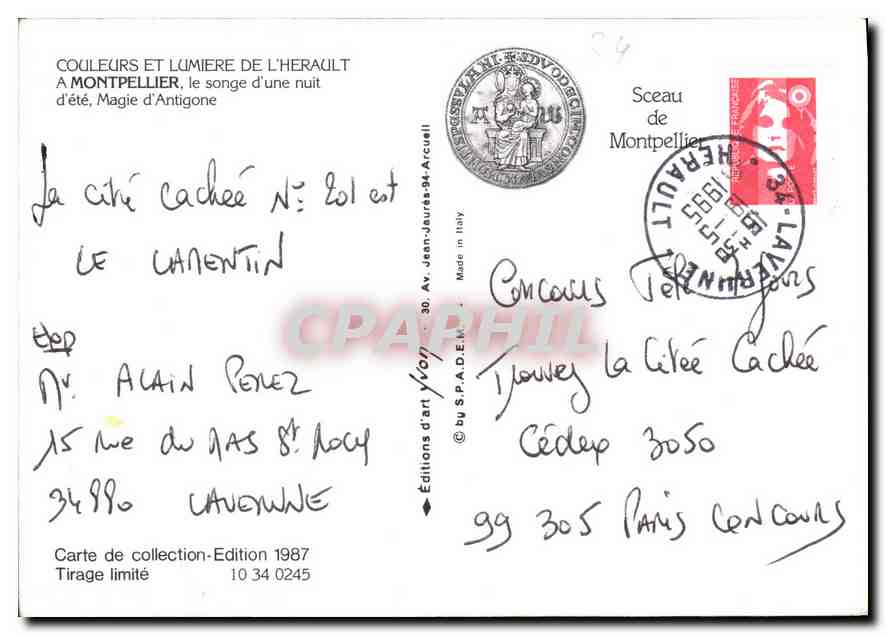 COULEURS ET LUMIERE DE L'HERAULT
A MONTPELLIER, le songe d'une nuit
d'été, Magie d'Antigone
La cité cachée N° 201 est
LE LAMENTIN
Exp
Mr. ALAIN PEREZ
15 rue du MAS St. Rocq
34880 LAVERUNE
Carte de collection-Edition 1987
Tirage limité 10 34 0245
◆ Editions d'art yvon · 30. Av. Jean-Jaurès-94-Arcueil
© by S.P.A.D.E.M. · Made in Italy
Sceau
de
Montpellier
REPUBLIQUE FRANÇAISE
34-LAVERUNE
HERAULT
1995
Concours Télé 7 Jours
Trouvez la Citée Cachée
Cédex 3050
99 305 PARIS CONCOURS
CPAPHIL